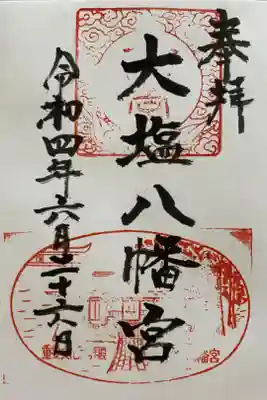 奉拝
大塩八幡宮
令和四年六月二十六日